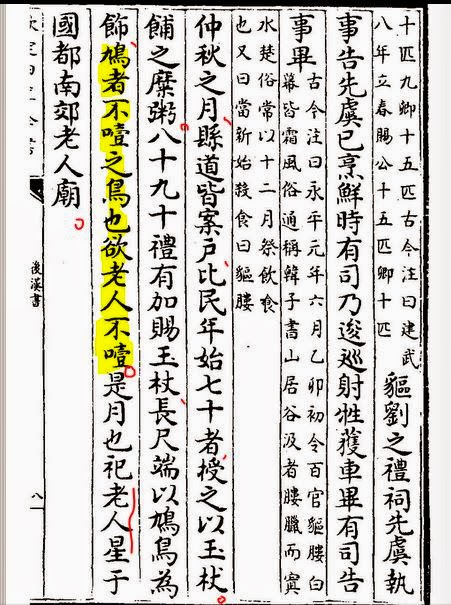 十匹九卿十五匹古今注曰建武
八年立春賜公十五匹卿十匹
貙劉之禮祠先虞執
事告先虞已烹鮮時有司乃逡巡射牲獲車畢有司告
事畢
古今注曰永平元年六月乙卯初令百官貙膢白
幕皆霜風俗通稱韓子書山居谷汲者膢臘而寘
水楚俗常以十二月祭飲食
也又曰當新始殺食曰貙膢
仲秋之月縣道皆案戶比民年始七十者授之以玉杖
餔之糜粥八十九十禮有加賜玉杖長尺端以鳩鳥為
飾鳩者不噎之鳥也欲老人不噎是月也祀老人星于
國都南郊老人廟
後漢書
八